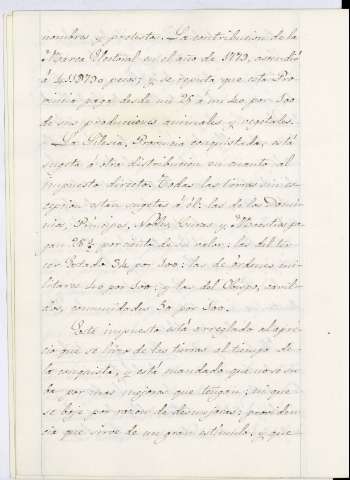 nombres y protesta. La contribucion de la
Marca Electoral en el año de 1773, ascendió
á pesos; y se reputa que esta Pro
vincia paga desde un 25 á un 40 por 100
de sus producciones animales y vegetales.
La Silesia, Provincia conquistada, está
sugeta á otra distribucion en cuanto al
impuesto directo. Todas las tierras sin es
cepcion estan sugetas á él: las de los
Principes, Nobles, Curas y Maestros pa
gan 28⅓ por ciento de su valor: las del ter
cer Estado 34 por 100: las de órdenes mi
litares 40 por 100: y las del Obispo, cavil
dos, comunidades 50 por 100.
Este impuesto está arreglado al apre
cio que se hizo de las tierras al tiempo de
la conquista, y está mandado que no se su
ba por mas mejoras que tengan; ni que
se baje por razon de desmejoras; providen
cia que sirve de un gran estímulo, y que